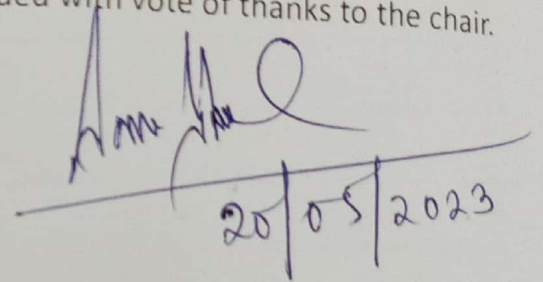 with vote of thanks to the chair.
20/05/2023